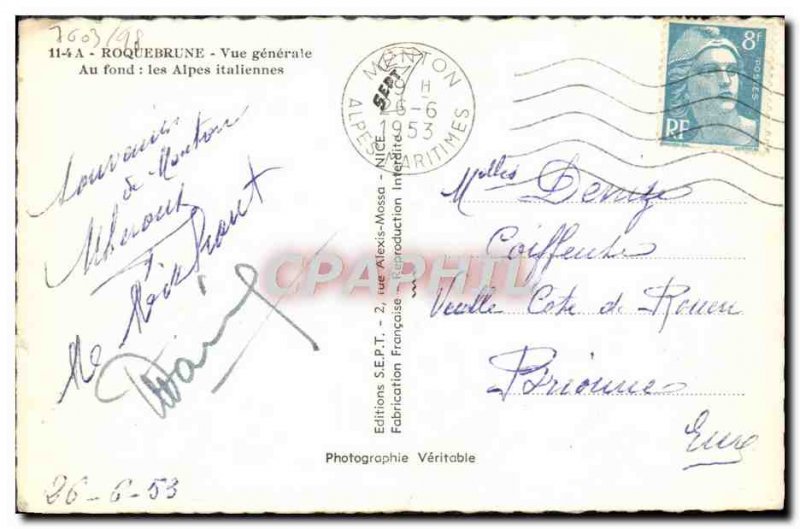 7603/98
11-4 A - ROQUEBRUNE - Vue générale
Au fond : les Alpes italiennes
MENTON
9 H
26-6
1953
ALPES-MARITIMES
8F
POSTES
RF
SEPT
Souvenir
de Menton
Me
26-6-53
Editions S.E.P.T. - 2, rue Alexis-Mossa - NICE
Fabrication Française - Reproduction Interdite
Photographie Véritable
Melles Denize
Coiffeuse
Vieille Cote de Rouen
Brionne
Eure
CPAPHIL